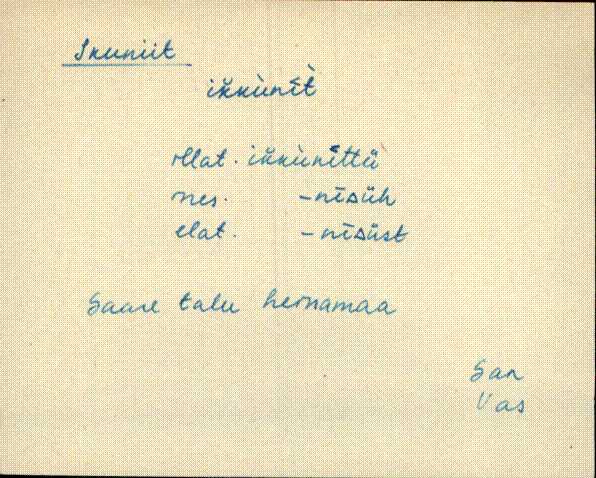 Ikuniit
ik̆kùnīt̀
illat. ik̆kùnīttü
ines. -nīsüh
elat. -nīsüst
Saare talu heinamaa
San
Vas